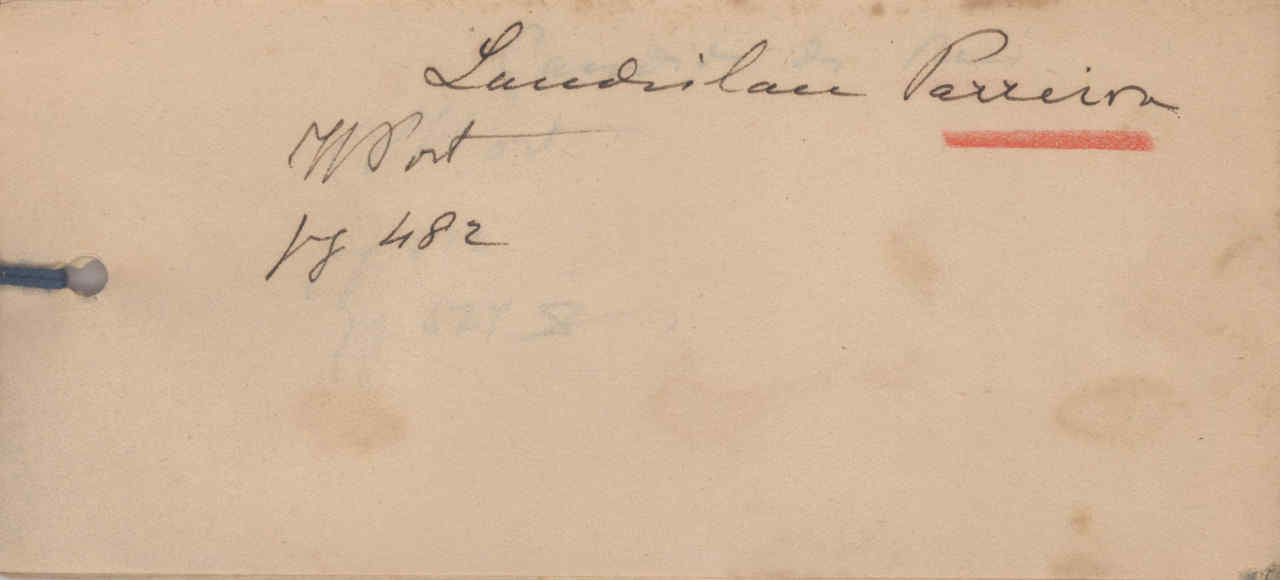 Landislau Parreira
W Port
pg 482